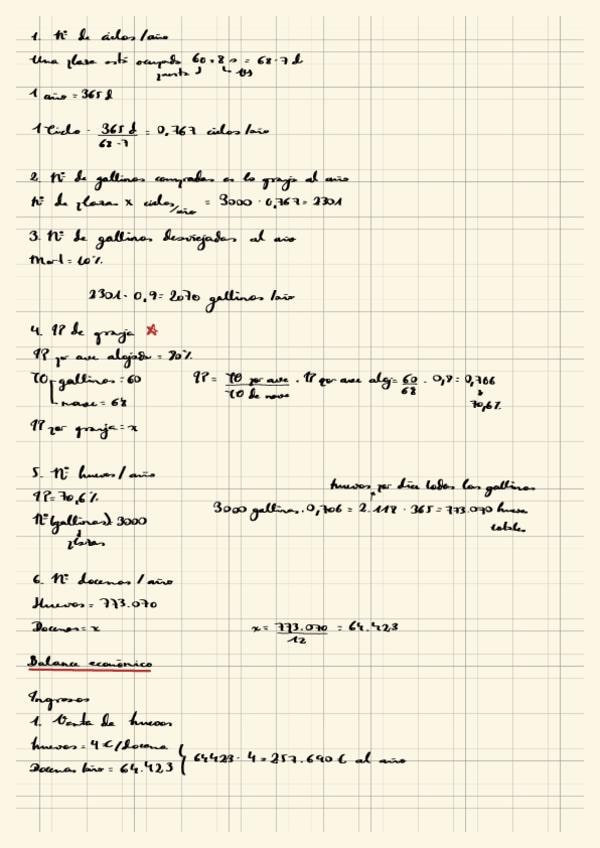 1. Nº de ciclos/año
Una plaza está ocupada 60+8 s = 68·7 d
puesta VS
1 año = 365 d
1 Ciclo · 365 d / 68·7 = 0,767 ciclos/año
2. Nº de gallinas compradas en la granja al año
Nº de plazas x ciclos/año = 3000 · 0,767 = 2301
3. Nº de gallinas desviejadas al año
Mort = 10%
2301 · 0,9 = 2070 gallinas/año
4. IP de granja
IP por ave alojada = 80%
TO gallinas = 60
nave = 68
IP = TO por ave / TO de nave · IP por ave aloj = 60/68 · 0,8 = 0,706
70,6%
IP por granja = x
5. Nº huevos/año
huevos por día todas las gallinas
IP = 70,6%
3000 gallinas · 0,706 = 2.118 · 365 = 773.070 huevos totales
Nº(gallinas) = 3000
plazas
6. Nº docenas/año
Huevos = 773.070
Docenas = x
x = 773.070 / 12 = 64.423
Balance económico
Ingresos
1. Venta de huevos
huevos = 4 €/docena
Docenas/año = 64.423
64423 · 4 = 257.690 € al año